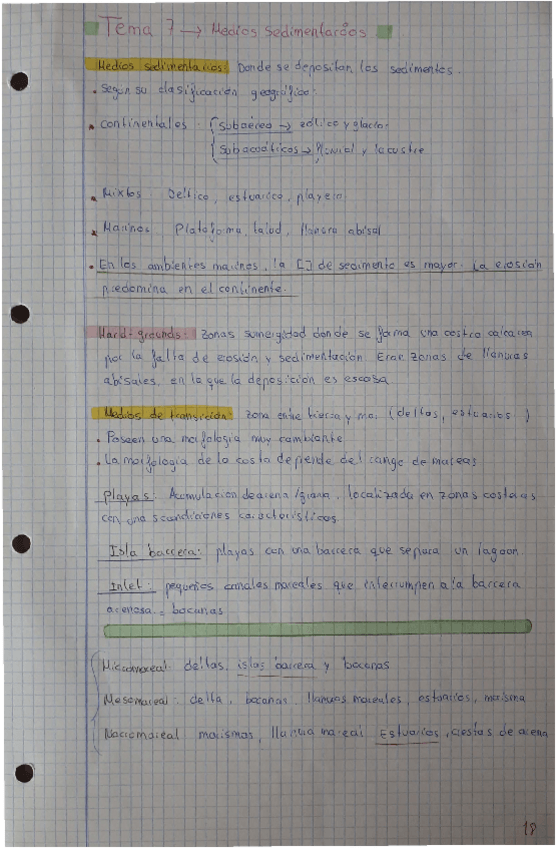 Tema 7 → Medios Sedimentarios
Medios sedimentarios: Donde se depositan los sedimentos.
• Según su clasificación geográfica:
• Continentales: Subaéreo → eólico y glaciar
Subacuáticos → fluvial y lacustre
• Mixtos: Deltico, estuarico, playero
• Marinos: Plataforma, talud, llanura abisal
• En los ambientes marinos, la [] de sedimento es mayor. La erosión
predomina en el continente.
Hard-grounds: Zonas sumergidad donde se forma una costra calcarea
por la falta de eosión y sedimentación. Eran zonas de llanuras
abisales, en la que la deposición es escasa
Medios de transición: zona entre tierra y mar (deltas, estuarios)
• Poseen una morfología muy cambiante
• La morfología de la costa depende del rango de mareas
Playas: Acumulacion de arena/grava, localizada en zonas costeras
con unas condiciones caracteristicas.
Isla barrera: playas con una barrera que separa un lagoon
Inlet: pequeños canales mareales que interrumpen a la barrera
arenosa = bocanas
Micromareal: deltas, islas barrera y bocanas
Mesomareal: delta, bocanas, llanuras mareales, estuarios, marisma
Macromareal: marismas, llanura mareal, Estuarios, crestas de arena
18